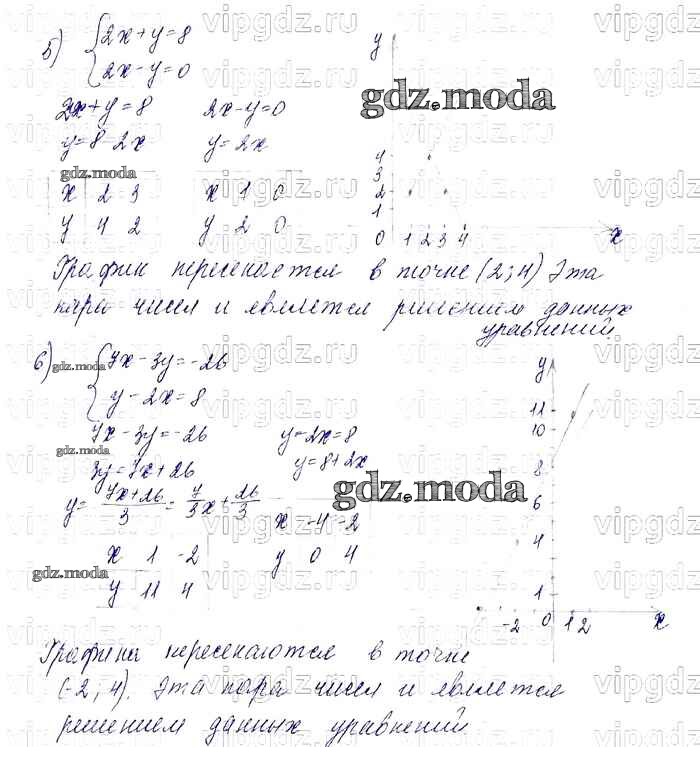 5) { 2x+y=8
2x-y=0
2x+y=8 2x-y=0
y=8-2x y=2x
x 2 3 x 1 0
y 4 2 y 2 0
y
4
3
2
1
0 1 2 3 4 x
График пересекается в точке (2;4) Эта
пара чисел и является решением данных
уравнений.
6) { 7x-3y=-26
y-2x=8
7x-3y=-26 y-2x=8
3y=7x+26 y=8+2x
y= (7x+26)/3 = 7/3 x + 26/3
x 1 -2 x -4 -2
y 11 4 y 0 4
y
11
10
8
6
4
1
-2 0 1 2 x
Графики пересекаются в точке
(-2;4). Эта пара чисел и является
решением данных уравнений.
gdz.moda
gdz.moda
gdz.moda
gdz.moda
gdz.moda
gdz.moda
vipgdz.ru